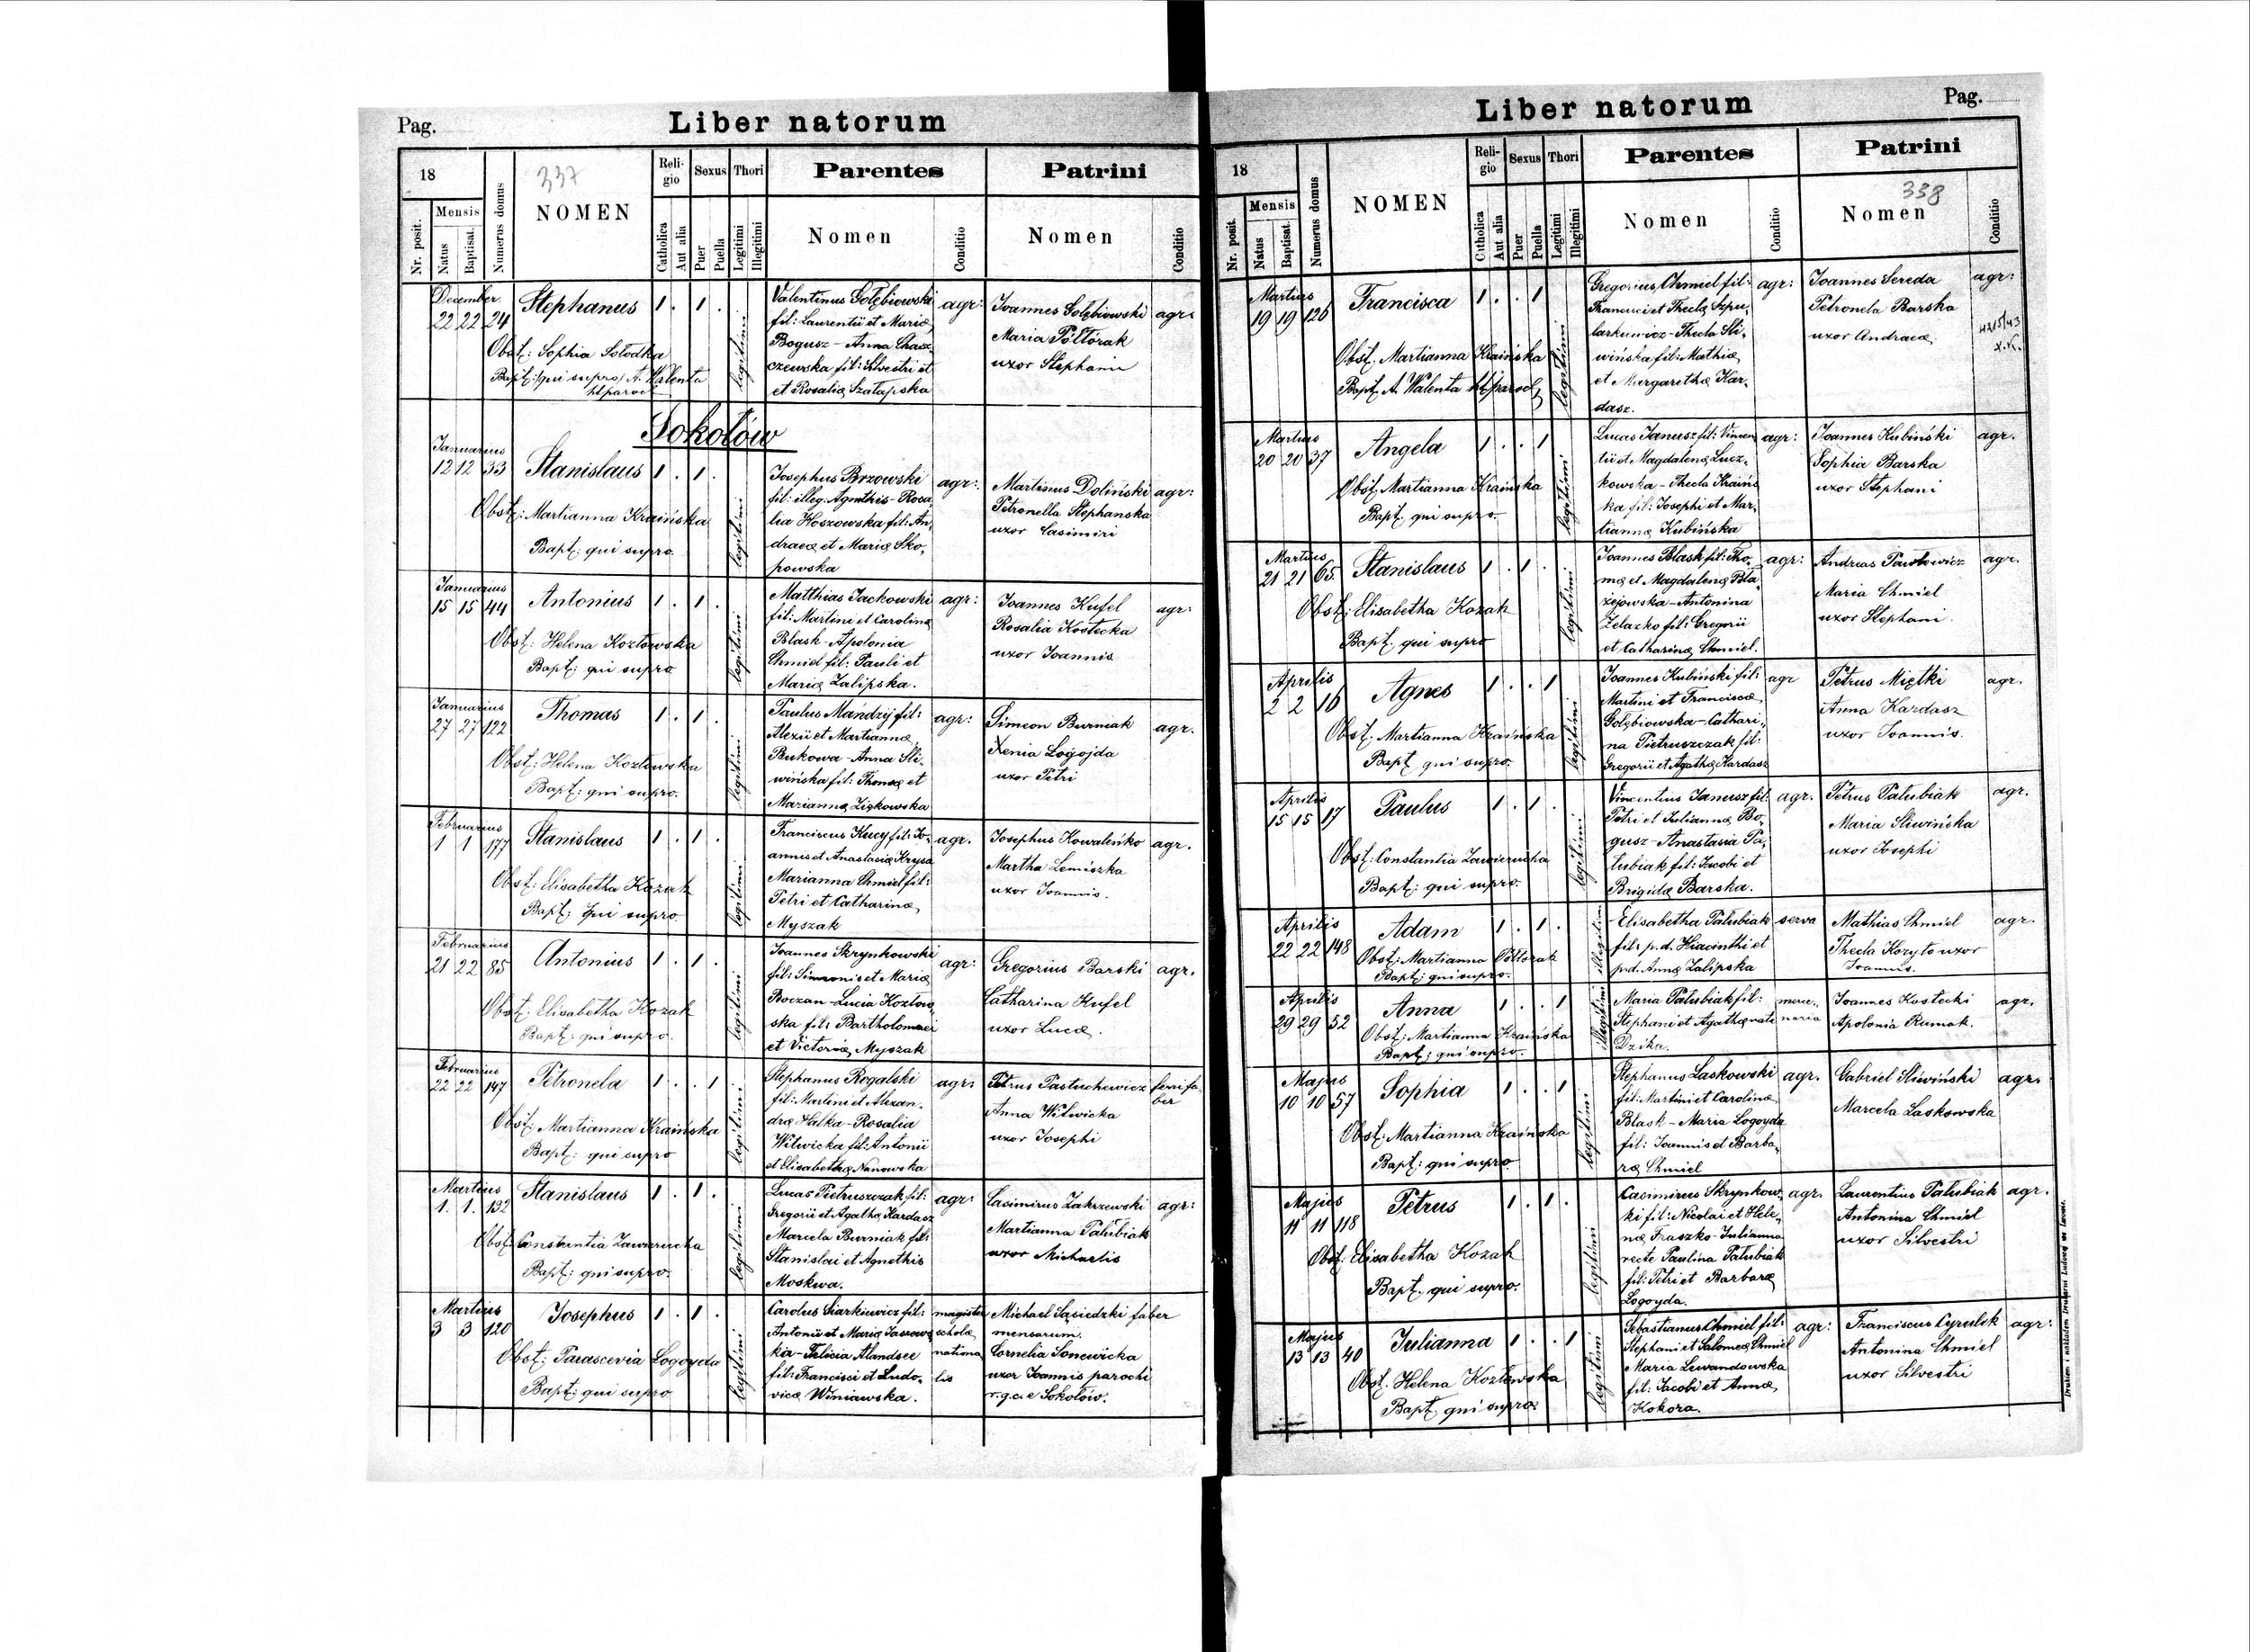 Pag.
Liber natorum
18
337
Mensis
Nr. posit.
Natus
Baptisat.
Numerus domus
NOMEN
Religio
Catholica
Aut alia
Sexus
Puer
Puella
Thori
Legitimi
Illegitimi
Parentes
Nomen
Conditio
Patrini
Nomen
Conditio
December
22 22 24 Stephanus 1 . 1 .
Obst: Sophia Sołodka
Bapt: (qui supro) A. Walenta
legitimi
Valentinus Gołębiowski
fil: Laurentii et Mariæ
Bogusz - Anna
czewska fil: Silvestri et
et Rosaliæ Szatapska
agr:
Joannes Gołębiowski
Maria Półtorak
uxor Stephani
agr:
Sokołów
Januarius
12 12 33 Stanislaus 1 . 1 .
Obst: Martianna Kraińska
Bapt: qui supro.
legitimi
Josephus Brzowski
fil: illeg. Agnethis - Rosa
lia Koszowska fil: An,
dreæ et Mariæ Sko,
powska
agr:
Martinus Doliński
Petronella Stephanska
uxor Casimiri
agr:
Januarius
15 15 44 Antonius 1 . 1 .
Obst: Helena Kozłowska
Bapt: qui supro
legitimi
Matthias Jackowski
fil: Martini et Carolinæ
Blask - Apolonia
Chmiel fil: Pauli et
Mariæ Zalipska.
agr:
Joannes Kufel
Rosalia Kostecka
uxor Joannis
agr:
Januarius
27 27 122 Thomas 1 . 1 .
Obst: Helena Kozłowska
Bapt: qui supro.
legitimi
Paulus Mańdzij fil:
Alexii et Martiannæ
Bukowa - Anna Sli,
wińska fil: Thomæ et
Mariannæ Ziękowska
agr:
Simeon Burniak
Xenia Łogojda
uxor Petri
agr.
Februarius
1 1 177 Stanislaus 1 . 1 .
Obst: Elisabetha Kozak
Bapt: qui supro
legitimi
Franciscus Kucy fil: Jo,
annis et Anastasiæ Krysa
Marianna Chmiel fil:
Petri et Catharinæ
Myszak
agr.
Josephus Kowaleńko
Martha Lemiszka
uxor Joannis.
agr.
Februarius
21 22 85 Antonius 1 . 1 .
Obst: Elisabetha Kozak
Bapt: qui supro.
legitimi
Joannes Skrynkowski
fil: Simeonis et Mariæ
Boczan - Lucia Kozłow,
ska fil: Bartholomæi
et Victoriæ Myszak
agr:
Gregorius Barski
Catharina Kufel
uxor Lucæ.
agr.
Februarius
22 22 147 Petronela 1 . . 1
Obst: Martianna Kraińska
Bapt: qui supro
legitimi
Stephanus Rogalski
fil: Martini et Alexan,
dræ Hałka - Rosalia
Witwicka fil: Antonii
et Elisabethæ Nanowska
agr:
Petrus Pastuchewicz
Anna Witwicka
uxor Josephi
ferri fa,
ber
Martius
1. 1. 132 Stanislaus 1 . 1 .
Obst: Constantia Zawierucha
Bapt: qui supro.
legitimi
Lucas Pietruszczak fil:
Gregorii et Agathæ Kardasz
Marcela Burniak fil:
Stanislai et Agnethis
Moskwa.
agr:
Casimirus Zakrzewski
Martianna Pałubiak
uxor Michaelis
agr:
Martius
3 3 120 Josephus 1 . 1 .
Obst: Parascevia Łogoyda
Bapt: qui supro
legitimi
Carolus Siarkiewicz fil:
Antonii et Mariæ
kia - Felicia Alandsee
fil: Francisci et Ludo,
vicæ Winiawska.
magister
scholæ
nationa
lis
Michael Sąsiedzki faber
mensarum.
Cornelia Sonewicka
uxor Joannis parochi
r.g.c. e Sokołów.
Liber natorum
Pag.
18
Mensis
Nr. posit.
Natus
Baptisat.
Numerus domus
NOMEN
Religio
Catholica
Aut alia
Sexus
Puer
Puella
Thori
Legitimi
Illegitimi
Parentes
Nomen
Conditio
Patrini
338
Nomen
Conditio
Martius
19 19 126 Francisca 1 . . 1
Obst. Martianna Kraińska
Bapt. A. Walenta
legitimi
Gregorius Chmiel fil:
Francisci et Theclæ Szpu,
larkiewicz - Thecla Sli,
wińska fil: Mathiæ
et Margarethæ Kar,
dasz.
agr:
Joannes Sereda
Petronela Barska
uxor Andreæ.
agr:
Martius
20 20 37 Angela 1 . . 1
Obst. Martianna Kraińska
Bapt. qui supro.
legitimi
Lucas Janusz fil: Vincen
tii et Magdalenæ Łucz,
kowska - Thecla Kraińs
ka fil: Josephi et Mar,
tiannæ Kubińska
agr:
Joannes Kubiński
Sophia Barska
uxor Stephani
agr.
Martius
21 21 65. Stanislaus 1 . 1 .
Obst: Elisabetha Kozak
Bapt. qui supro
legitimi
Joannes Blask fil: Tho,
mæ et Magdalenæ Bła
żejowska - Antonina
Żelazko fil: Gregorii
et Catharinæ Chmiel.
agr:
Andreas Pawłowicz
Maria Chmiel
uxor Stephani.
agr.
Aprilis
2 2 16 Agnes 1 . . 1
Obst. Martianna Kraińska
Bapt. qui supro.
legitimi
Joannes Kubiński fil:
Martini et Franciscæ
Gołębiowska - Cathari,
na Pietruszczak fil:
Gregorii et Agathæ Kardasz
agr
Petrus Miętki
Anna Kardasz
uxor Joannis.
agr.
Aprilis
15 15 17 Paulus 1 . 1 .
Obst: Constantia Zawierucha
Bapt: qui supro.
legitimi
Vincentius Janusz fil:
Petri et Juliannæ Bo,
gusz - Anastasia Pa,
łubiak fil: Jacobi et
Brigidæ Barska.
agr.
Petrus Pałubiak
Maria Sliwińska
uxor Josephi
agr.
Aprilis
22 22 148 Adam 1 . 1 .
Obst: Martianna Półtorak
Bapt: qui supro.
illegitimi
Elisabetha Pałubiak
fil: p.d. Hiacinthi et
p.d. Annæ Zalipska
serva
Mathias Chmiel
Thecla Kozyło uxor
Joannis.
agr.
Aprilis
29 29 52 Anna 1 . . 1
Obst: Martianna Kraińska
Bapt: qui supro.
illegitimi
Maria Pałubiak fil:
Stephani et Agathæ natæ
Dzika.
merce,
naria
Joannes Kostecki
Apolonia Rumak.
agr.
Majus
10 10 57 Sophia 1 . . 1
Obst: Martianna Kraińska
Bapt: qui supro
legitimi
Stephanus Laskowski
fil: Martini et Carolinæ
Blask - Maria Łogoyda
fil: Joannis et Barba,
ræ Chmiel
agr.
Gabriel Sliwiński
Marcela Laskowska
agr.
Majus
11 11 118 Petrus 1 . 1 .
Obst: Elisabetha Kozak
Bapt. qui supro.
legitimi
Casimirus Skrynkow,
ki fil: Nicolai et Hele,
næ Fraszko - Julianna
recte Paulina Pałubiak
fil: Petri et Barbaræ
Łogoyda.
agr.
Laurentius Pałubiak
Antonina Chmiel
uxor Silvestri
agr.
Majus
13 13 40 Julianna 1 . . 1
Obst. Helena Kozłowska
Bapt. qui supro:
legitimi
Sebastianus Chmiel fil:
Stephani et Salomeæ Chmiel
Maria Lewandowska
fil: Jacobi et Annæ
Kokora.
agr:
Franciscus Cyrulik
Antonina Chmiel
uxor Silvestri
agr: